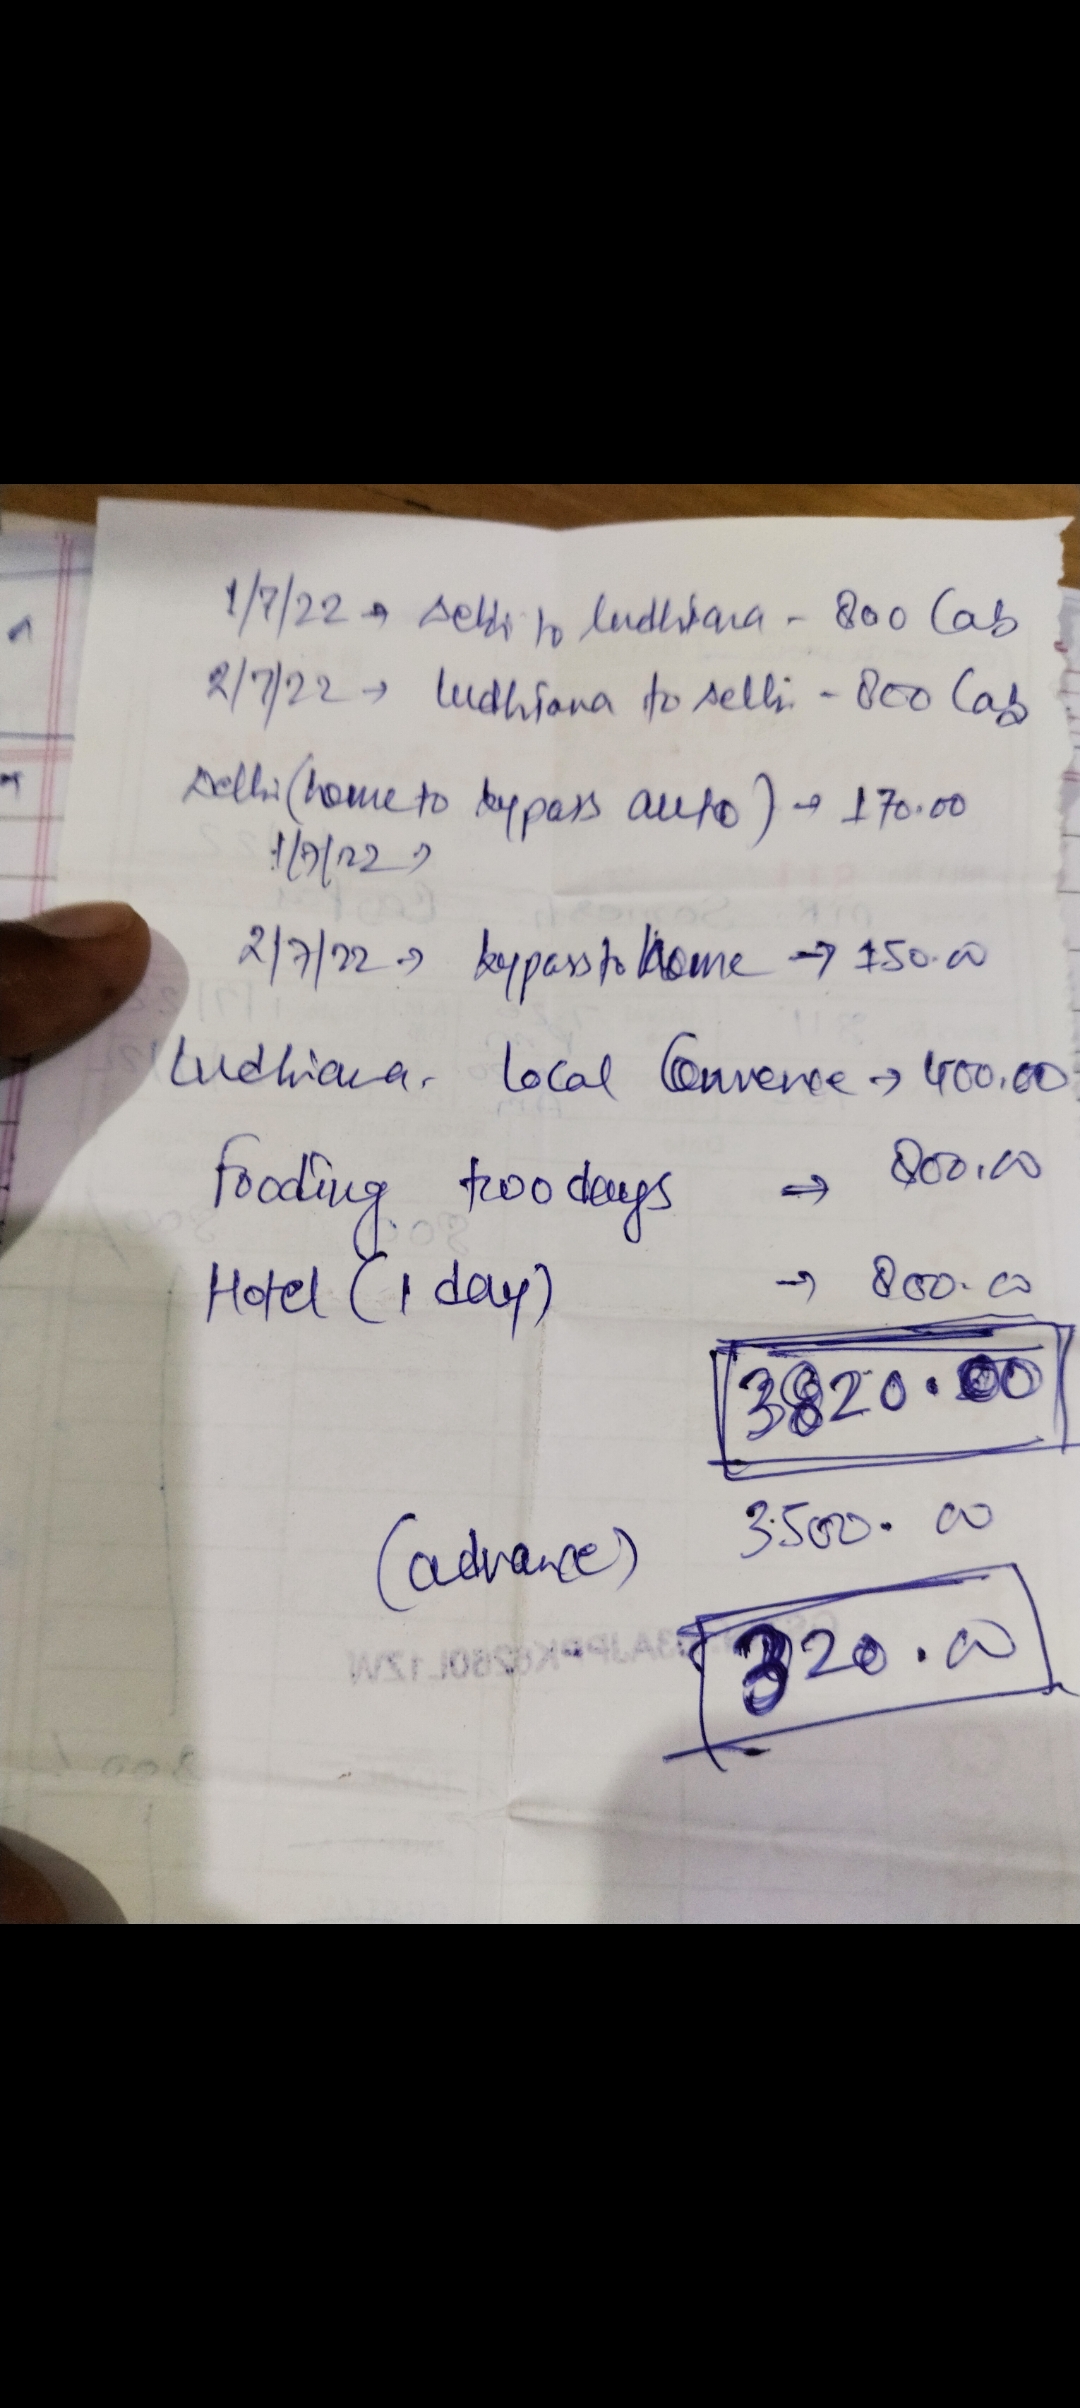 1/7/22 → Delhi to ludhiana - 800 Cab
2/7/22 → ludhiana to Delhi - 800 Cab
Delhi (home to bypass auto) → 170.00
1/7/22 →
2/7/22 → bypass to home → 150.00
Ludhiana. local Convence → 400.00
fooding two days → 800.00
Hotel (1 day) → 800.00
3820.00
3500.00
(advance)
320.00